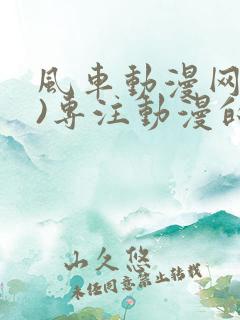 風车動漫网
)专注動漫的
山久悠
未经同意禁止转载